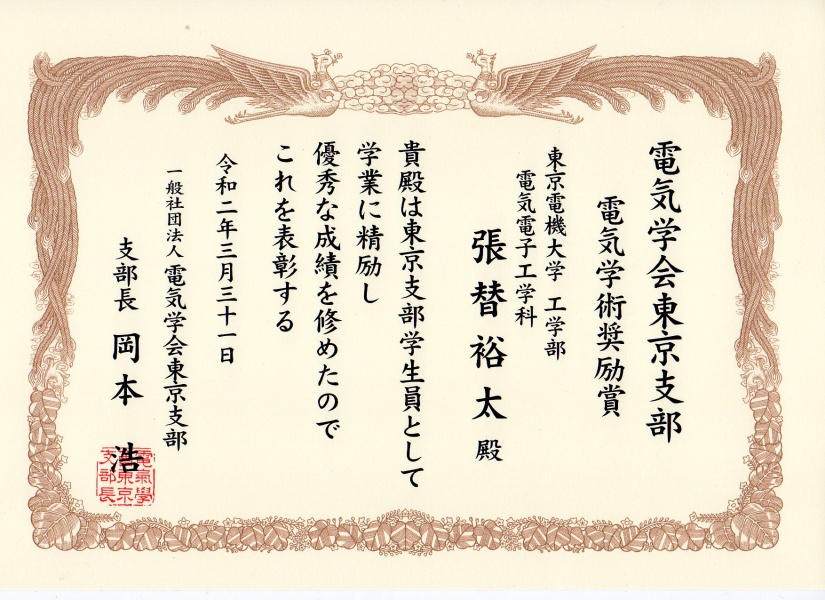 電気学会東京支部
電気学術奨励賞
東京電機大学 工学部
電気電子工学科
張替裕太 殿
貴殿は東京支部学生員として
学業に精励し
優秀な成績を修めたので
これを表彰する
令和二年三月三十一日
一般社団法人 電気学会東京支部
支部長 岡本 浩
電氣學
會東京
支部長